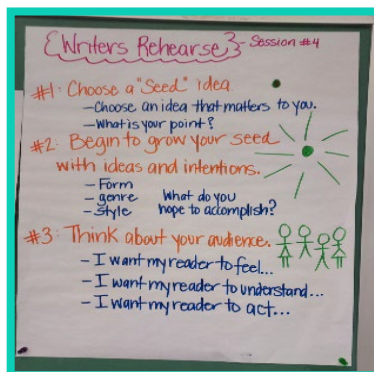 {Writers Rehearse} - Session #4
#1: Choose a "Seed" idea.
- Choose an idea that matters to you.
- What is your point?
#2: Begin to grow your seed
with ideas and intentions.
- Form
- genre
- style
What do you
hope to accomplish?
#3: Think about your audience.
- I want my reader to feel...
- I want my reader to understand...
- I want my reader to act...